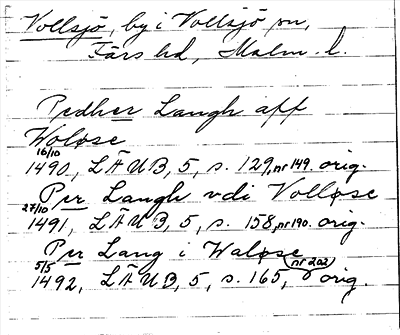 Vollsjö, by i Vollsjö sn,
Färs hd, Malm. l.
Pedher Laugh aff
Woløse
16/10
1490, LÄUB, 5, s. 129, nr 149. orig.
Per Laugh vdi Volløse
27/10
1491, LÄUB, 5, s. 158, nr 190. orig.
Per Lang i Waløse
5/5
1492, LÄUB, 5, s. 165, nr 202, orig.